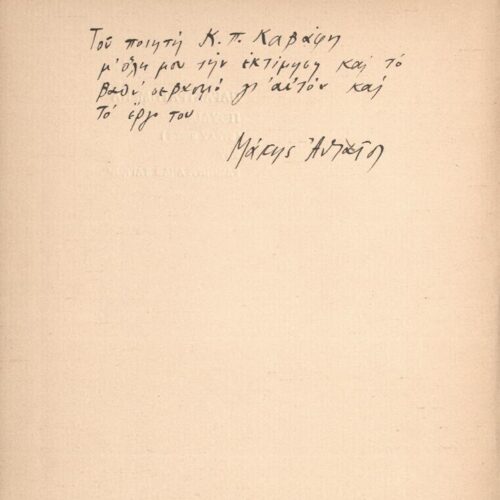 Τοῦ ποιητῆ Κ. Π. Καβάφη
μ' ὅλη μου τὴν ἐκτίμηση καὶ τὸ
βαθὺ σεβασμὸ γι' αὐτὸν καὶ
τὸ ἔργο του
Μάκης